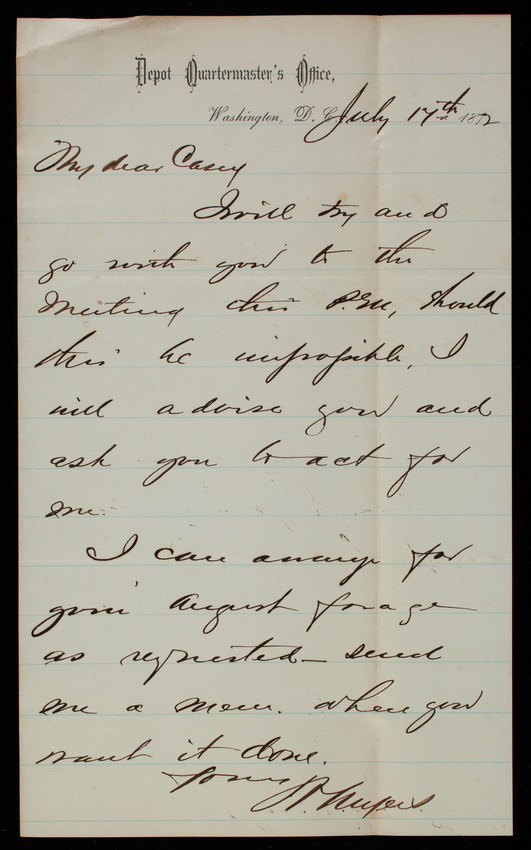 Depot Quartermaster's Office,
Washington, D. C. July 17th 1872
My dear Casey
I will try and
go with you to the
Meeting this P.M., should
this be impossible, I
will advise you and
ask you to act for
me.
I can arrange for
your August forage
as requested - send
me a mem. when you
want it done.
Yours
Myers